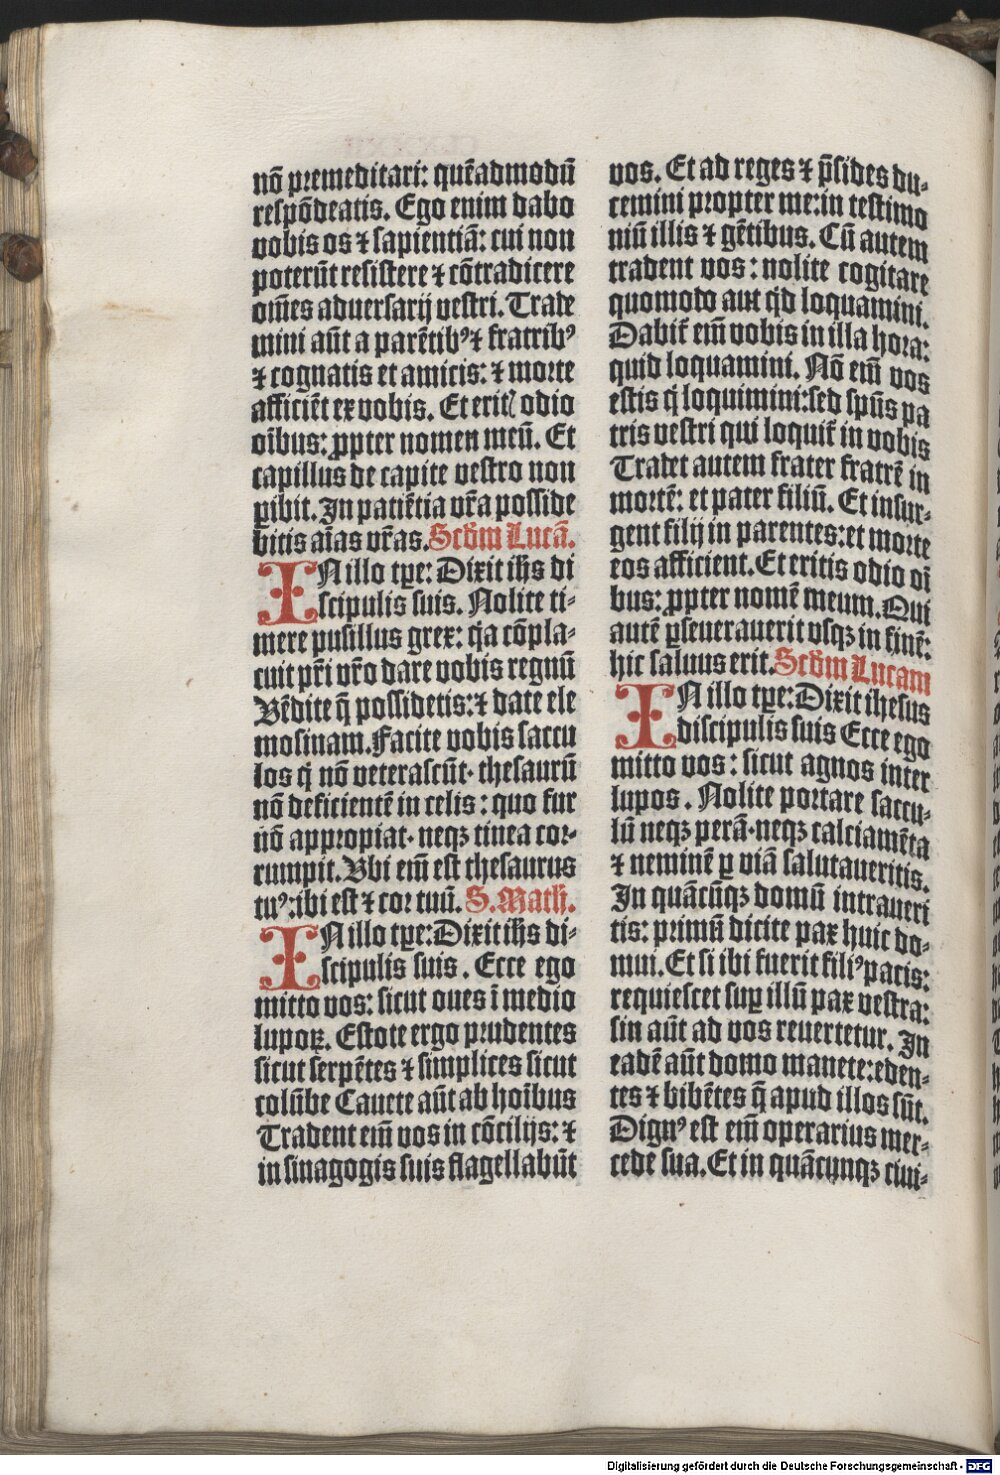 nõ premeditari: quẽadmodũ
respõdeatis. Ego enim dabo
vobis os ⁊ sapientiã: cui non
poterũt resistere ⁊ cõtradicere
om̃es adversarij vestri. Trade
mini aũt a parẽtibꝰ ⁊ fratribꝰ
⁊ cognatis et amicis: ⁊ morte
afficiẽt ex vobis. Et eritꝭ odio
oĩbus: ꝓpter nomen meũ. Et
capillus de capite vestro non
ꝑibit. In patiẽtia vr̃a posside
bitis aĩas vr̃as. Scḋm Lucã.
IN illo tꝑe: Dixit ih̃s di
scipulis suis. Nolite ti-
mere pusillus grex: q̃a cõpla-
cuit pr̃i vr̃o dare vobis regnũ
Vẽdite q̃ possidetis: ⁊ date ele
mosinam. Facite vobis saccu
los q̇ nõ veterascũt· thesaurũ
nõ deficientẽ in celis: quo fur
nõ appropiat· neqꝫ tinea cor-
rumpit. Vbi em̃ est thesaurus
tuꝰ: ibi est ⁊ cor tuũ. S. Math.
IN illo tꝑe: Dixit ih̃s di-
scipulis suis. Ecce ego
mitto vos: sicut oues ĩ medio
lupoꝝ. Estote ergo prudentes
sicut serpẽtes ⁊ simplices sicut
colũbe Cauete aũt ab hoĩbus
Tradent em̃ vos in cõcilijs: ⁊
in sinagogis suis flagellabũt
vos. Et ad reges ⁊ p̃sides du-
cemini propter me: in testimo
niũ illis ⁊ gẽtibus. Cũ autem
tradent vos: nolite cogitare
quomodo aut q̇d loquamini.
Dabit̃ em̃ vobis in illa hora:
quid loquamini. Nõ em̃ vos
estis q̇ loquimini: sed sp̃us pa
tris vestri qui loquit̃ in vobis
Tradet autem frater fratrẽ in
mortẽ: et pater filiũ. Et insur-
gent filij in parentes: et morte
eos afficient. Et eritis odio oĩ
bus: ꝓpter nomẽ meum. Qui
autẽ ꝑseuerauerit vsqꝫ in finẽ:
hic saluus erit. Scḋm Lucam
IN illo tꝑe: Dixit ihesus
discipulis suis Ecce ego
mitto vos: sicut agnos inter
lupos. Nolite portare saccu-
lũ neqꝫ perã· neqꝫ calciamẽta
⁊ neminẽ ꝑ viã salutaueritis.
In quãcũqꝫ domũ intraueri
tis: primũ dicite pax huic do-
mui. Et si ibi fuerit filiꝰ pacis:
requiescet suꝑ illũ pax vestra:
sin aũt ad vos reuertetur. In
eadẽ aũt domo manete: eden-
tes ⁊ bibẽtes q̃ apud illos sũt.
Dignꝰ est em̃ operarius mer-
cede sua. Et in quãcunqꝫ ciui-
Digitalisierung gefördert durch die Deutsche Forschungsgemeinschaft - DFG